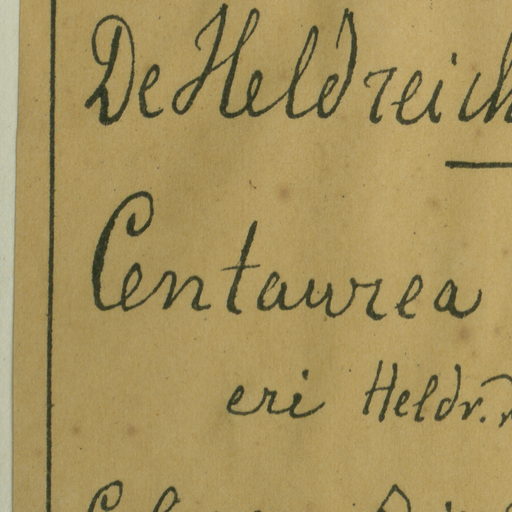 De Heldreich
Centaurea
eri Heldr.